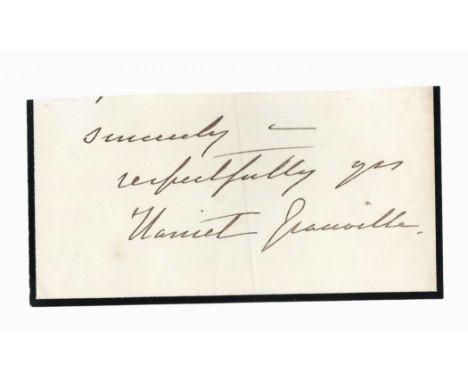 sincerely –
respectfully yrs
Harriet Granville.